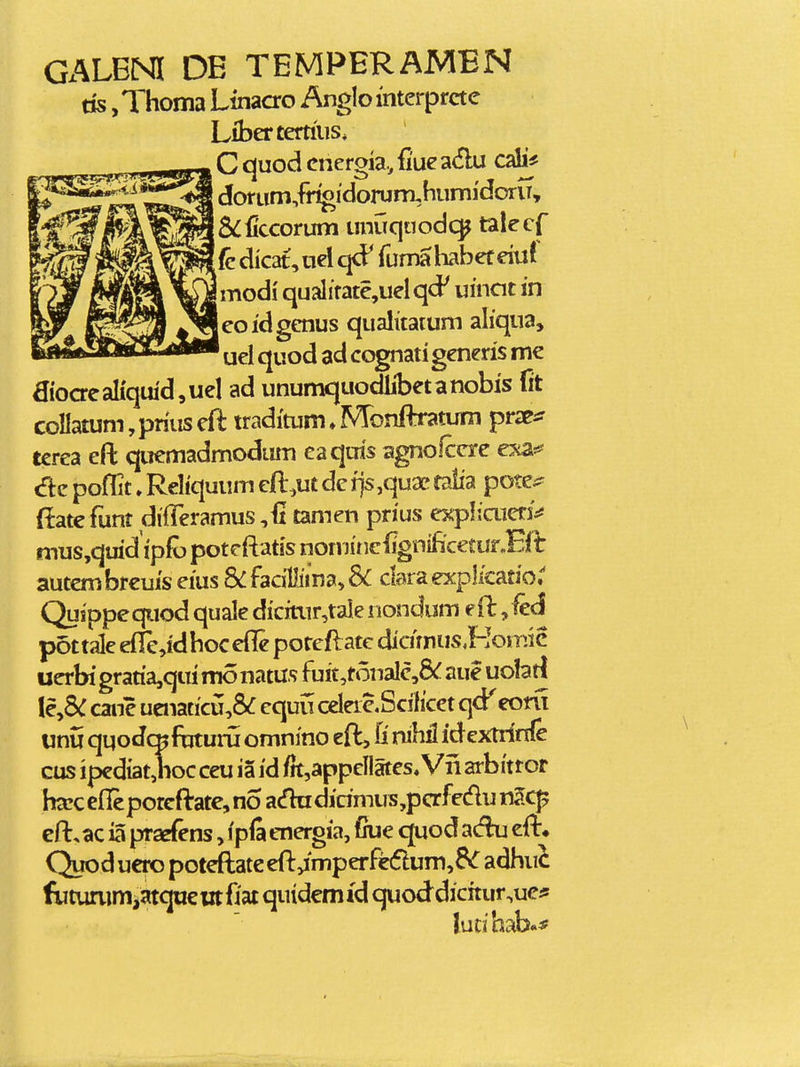 GALENI DE TEMPERAMEN
tis, Thoma Linacro Anglo interprete
Liber tertius.
AC quod energia, ſiue actu cali⸗
dorum, frigidorum, humidorū,
& ſiccorum unūquodqꝫ tale eſ
ſe dicat̄, uel qđ ſumā habet eiuſ
modi qualitatē, uel qđ uincit in
eo id genus qualitatum aliqua,
uel quod ad cognati generis me
diocre aliquid, uel ad unumquodlibet a nobis ſit
collatum, prius eſt traditum. Monſtratum præ⸗
terea eſt quemadmodum ea quis agnoſcere exa⸗
cte poſſit. Reliquum eſt, ut de ijs, quæ talia pote⸗
ſtate ſunt diſſeramus, ſi tamen prius explicueri⸗
mus, quid ipſo poteſtatis nomine ſignificetur. Eſt
autem breuis eius & facillima, & clara explicatio.
Quippe quod quale dicitur, tale nondum eſt, ſed
pōt tale eſſe, id hoc eſſe poteſtate dicimus. Homīē
uerbi gratia, qui mō natus fuit, rōnalē, & auē uolati
lē, & canē uenaticū, & equū celerē. Scilicet qđ eorū
unū quodqꝫ futurū omnino eſt, ſi nihil id extrinſe
cus īpediat, hoc ceu iā id ſit, appellātes. Vñ arbitror
hæc eſſe poteſtate, nō actu dicimus, perfectū nāqꝫ
eſt, ac iā præſens, ipſa energia, ſiue quod actu eſt.
Quod uero poteſtate eſt, imperfectum, & adhuc
futurum, atque ut fiat quidem id quod dicitur, ue⸗
luti hab⸗